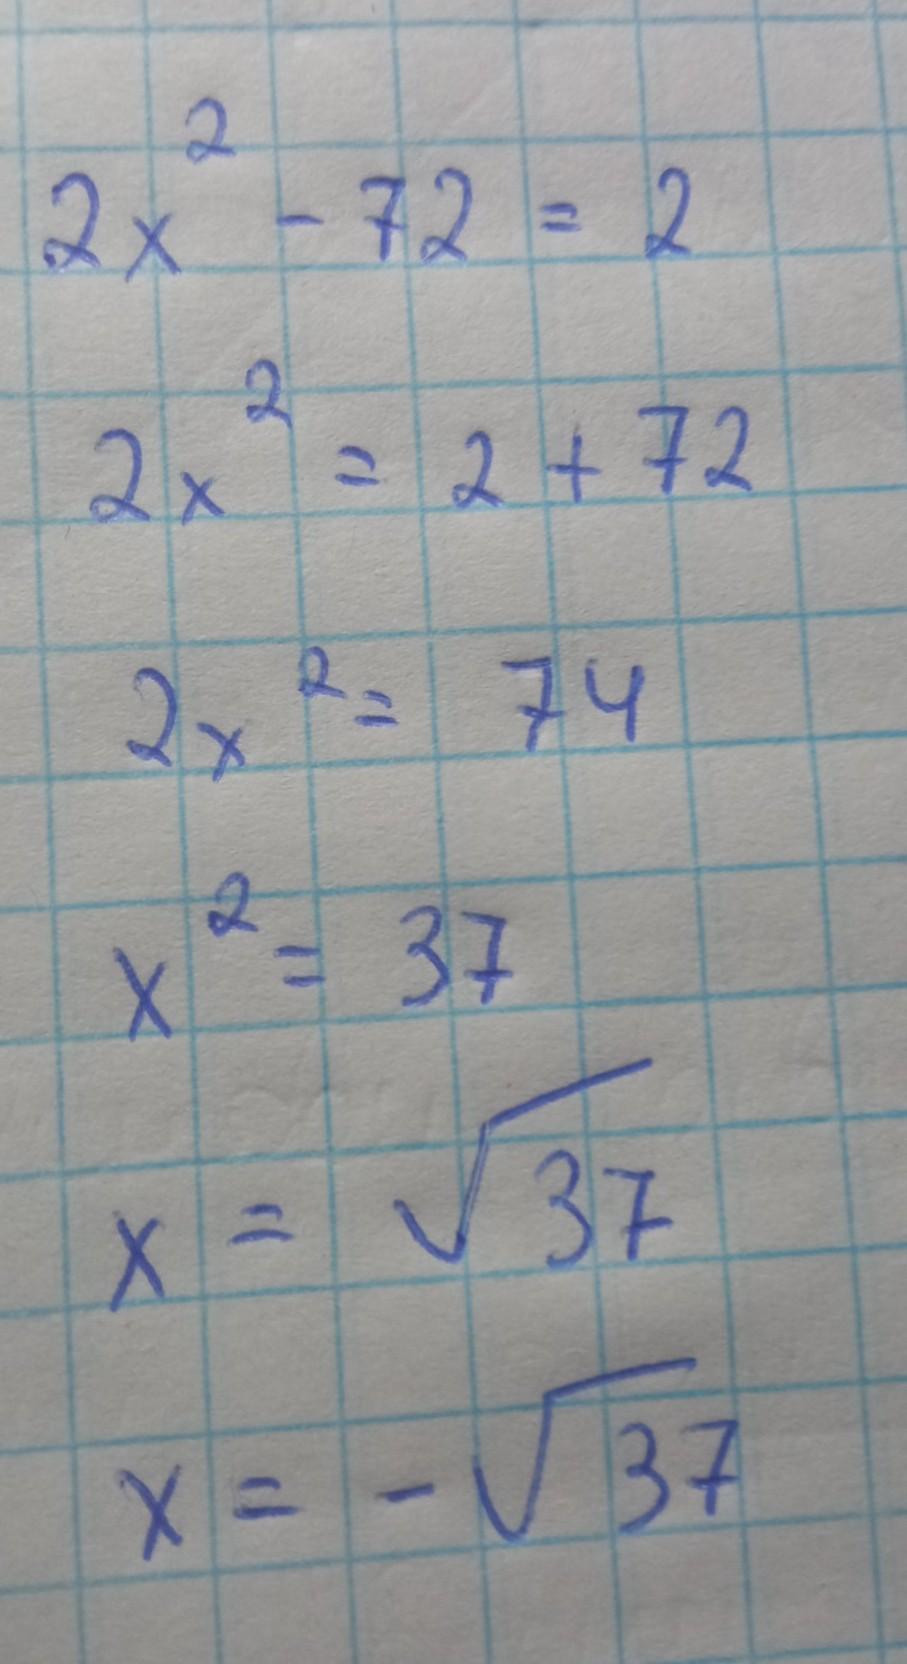 2x² - 72 = 2
2x² = 2 + 72
2x² = 74
x² = 37
x = √37
x = -√37